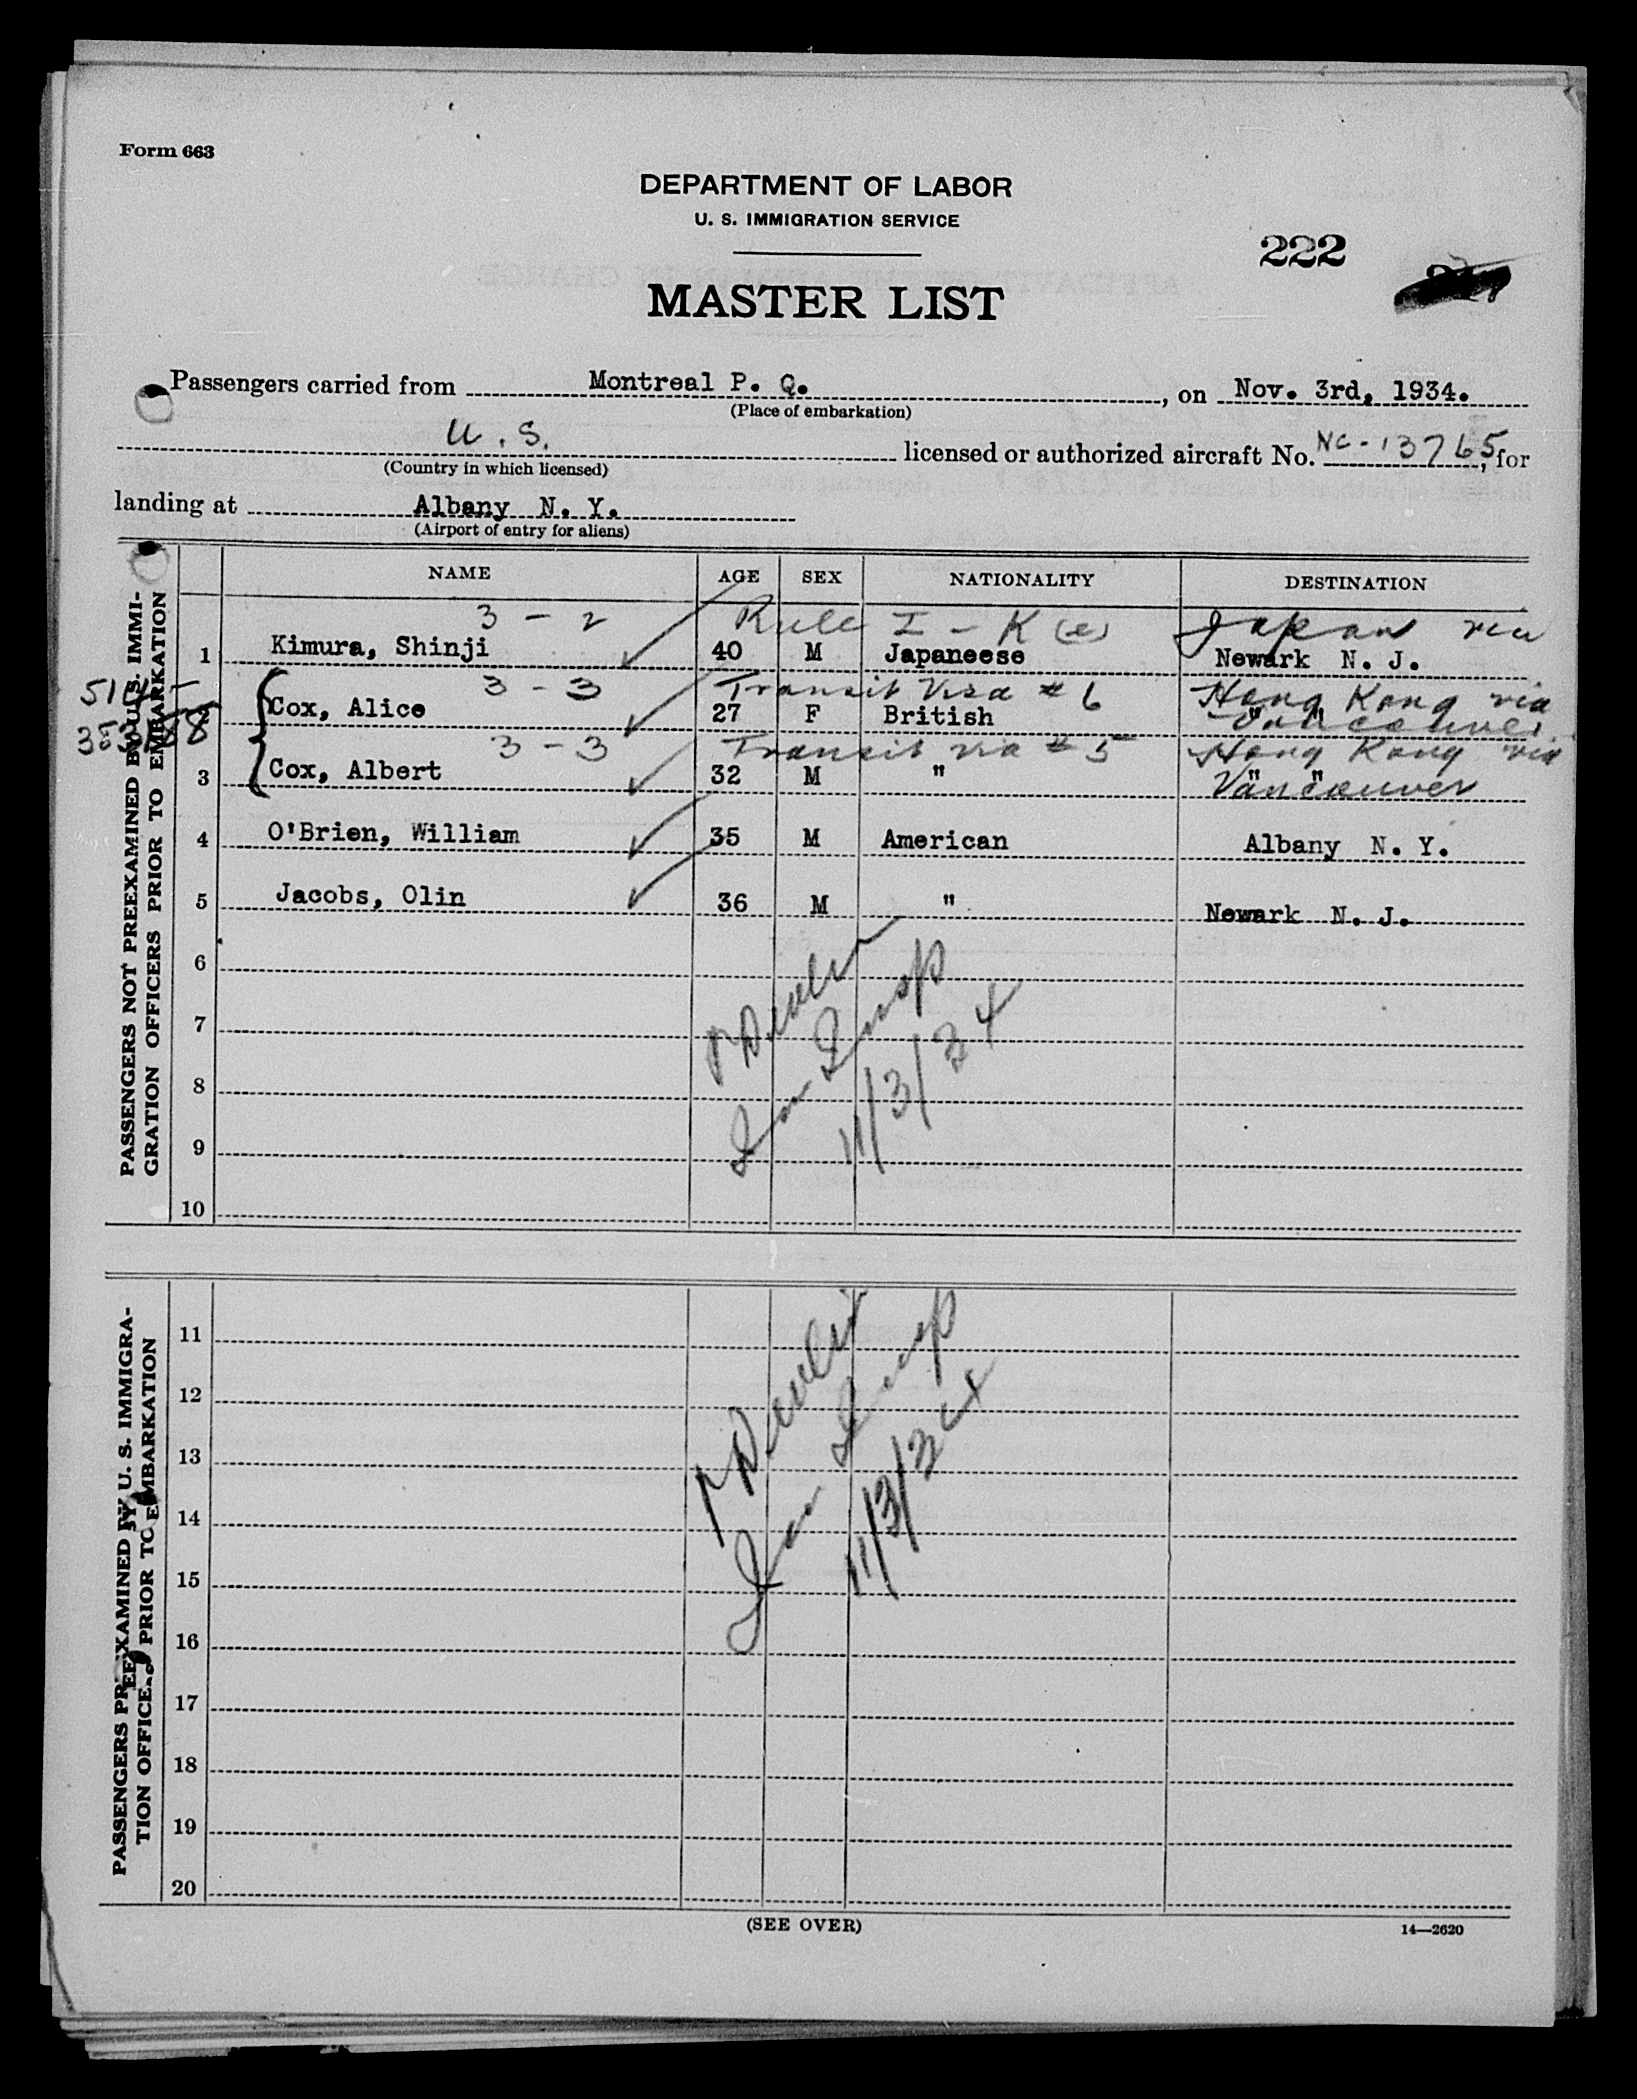 Form 663
DEPARTMENT OF LABOR
U. S. IMMIGRATION SERVICE
222
MASTER LIST
Passengers carried from Montreal P. Q. , on Nov. 3rd, 1934.
(Place of embarkation)
U. S. licensed or authorized aircraft No. NC-13765, for
(Country in which licensed)
landing at Albany N. Y.
(Airport of entry for aliens)
PASSENGERS NOT PREEXAMINED BY U. S. IMMI-
GRATION OFFICERS PRIOR TO EMBARKATION
NAME AGE SEX NATIONALITY DESTINATION
3 - 2 Rule I - K (e) Japan via
1 Kimura, Shinji 40 M Japaneese Newark N. J.
3 - 3 Transit Visa # 6 Hong Kong via
2 Cox, Alice 27 F British " " Vancouver
3 - 3 Transit via # 5 Hong Kong via
3 Cox, Albert 32 M " " " Vancouver
4 O'Brien, William 35 M American Albany N. Y.
5 Jacobs, Olin 36 M " Newark N. J.
6
7
8
9
10
Imm Insp
11/3/34
PASSENGERS PREEXAMINED BY U. S. IMMIGRA-
TION OFFICERS PRIOR TO EMBARKATION
11
12
13
14
15
16
17
18
19
20
Imm Insp
11/3/34
(SEE OVER)
14—2620